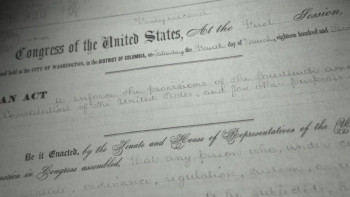 Forty-second
Congress of the United States, At the First Session,
and held at the CITY OF WASHINGTON, in the DISTRICT OF COLUMBIA, on Saturday the fourth day of March, eighteen hundred and
AN ACT to enforce the provisions of the fourteenth
Constitution of the United States, and for other purposes
Be it Enacted, by the Senate and House of Representatives of the
America in Congress assembled, That any person who, under
ordinance, regulation, custom,
to be subjected,